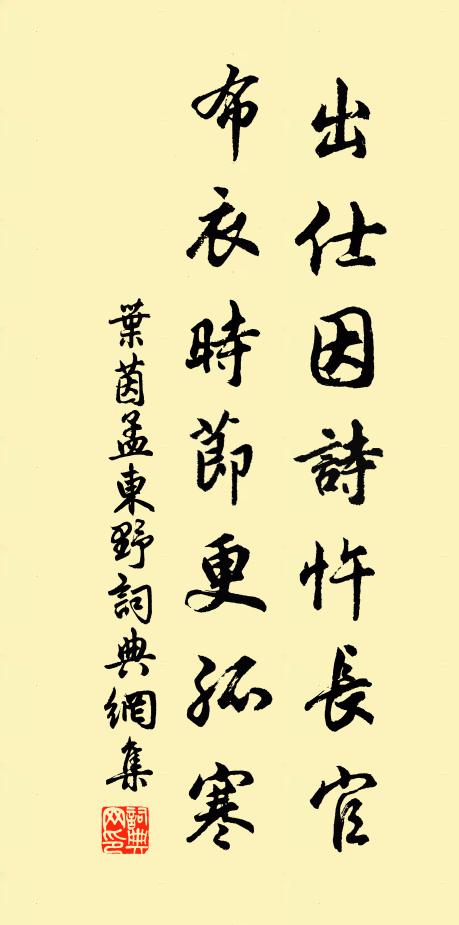 出仕因詩忤長官
布衣時節更孤寒
葉茵孟東野詞典網集
詞典网印